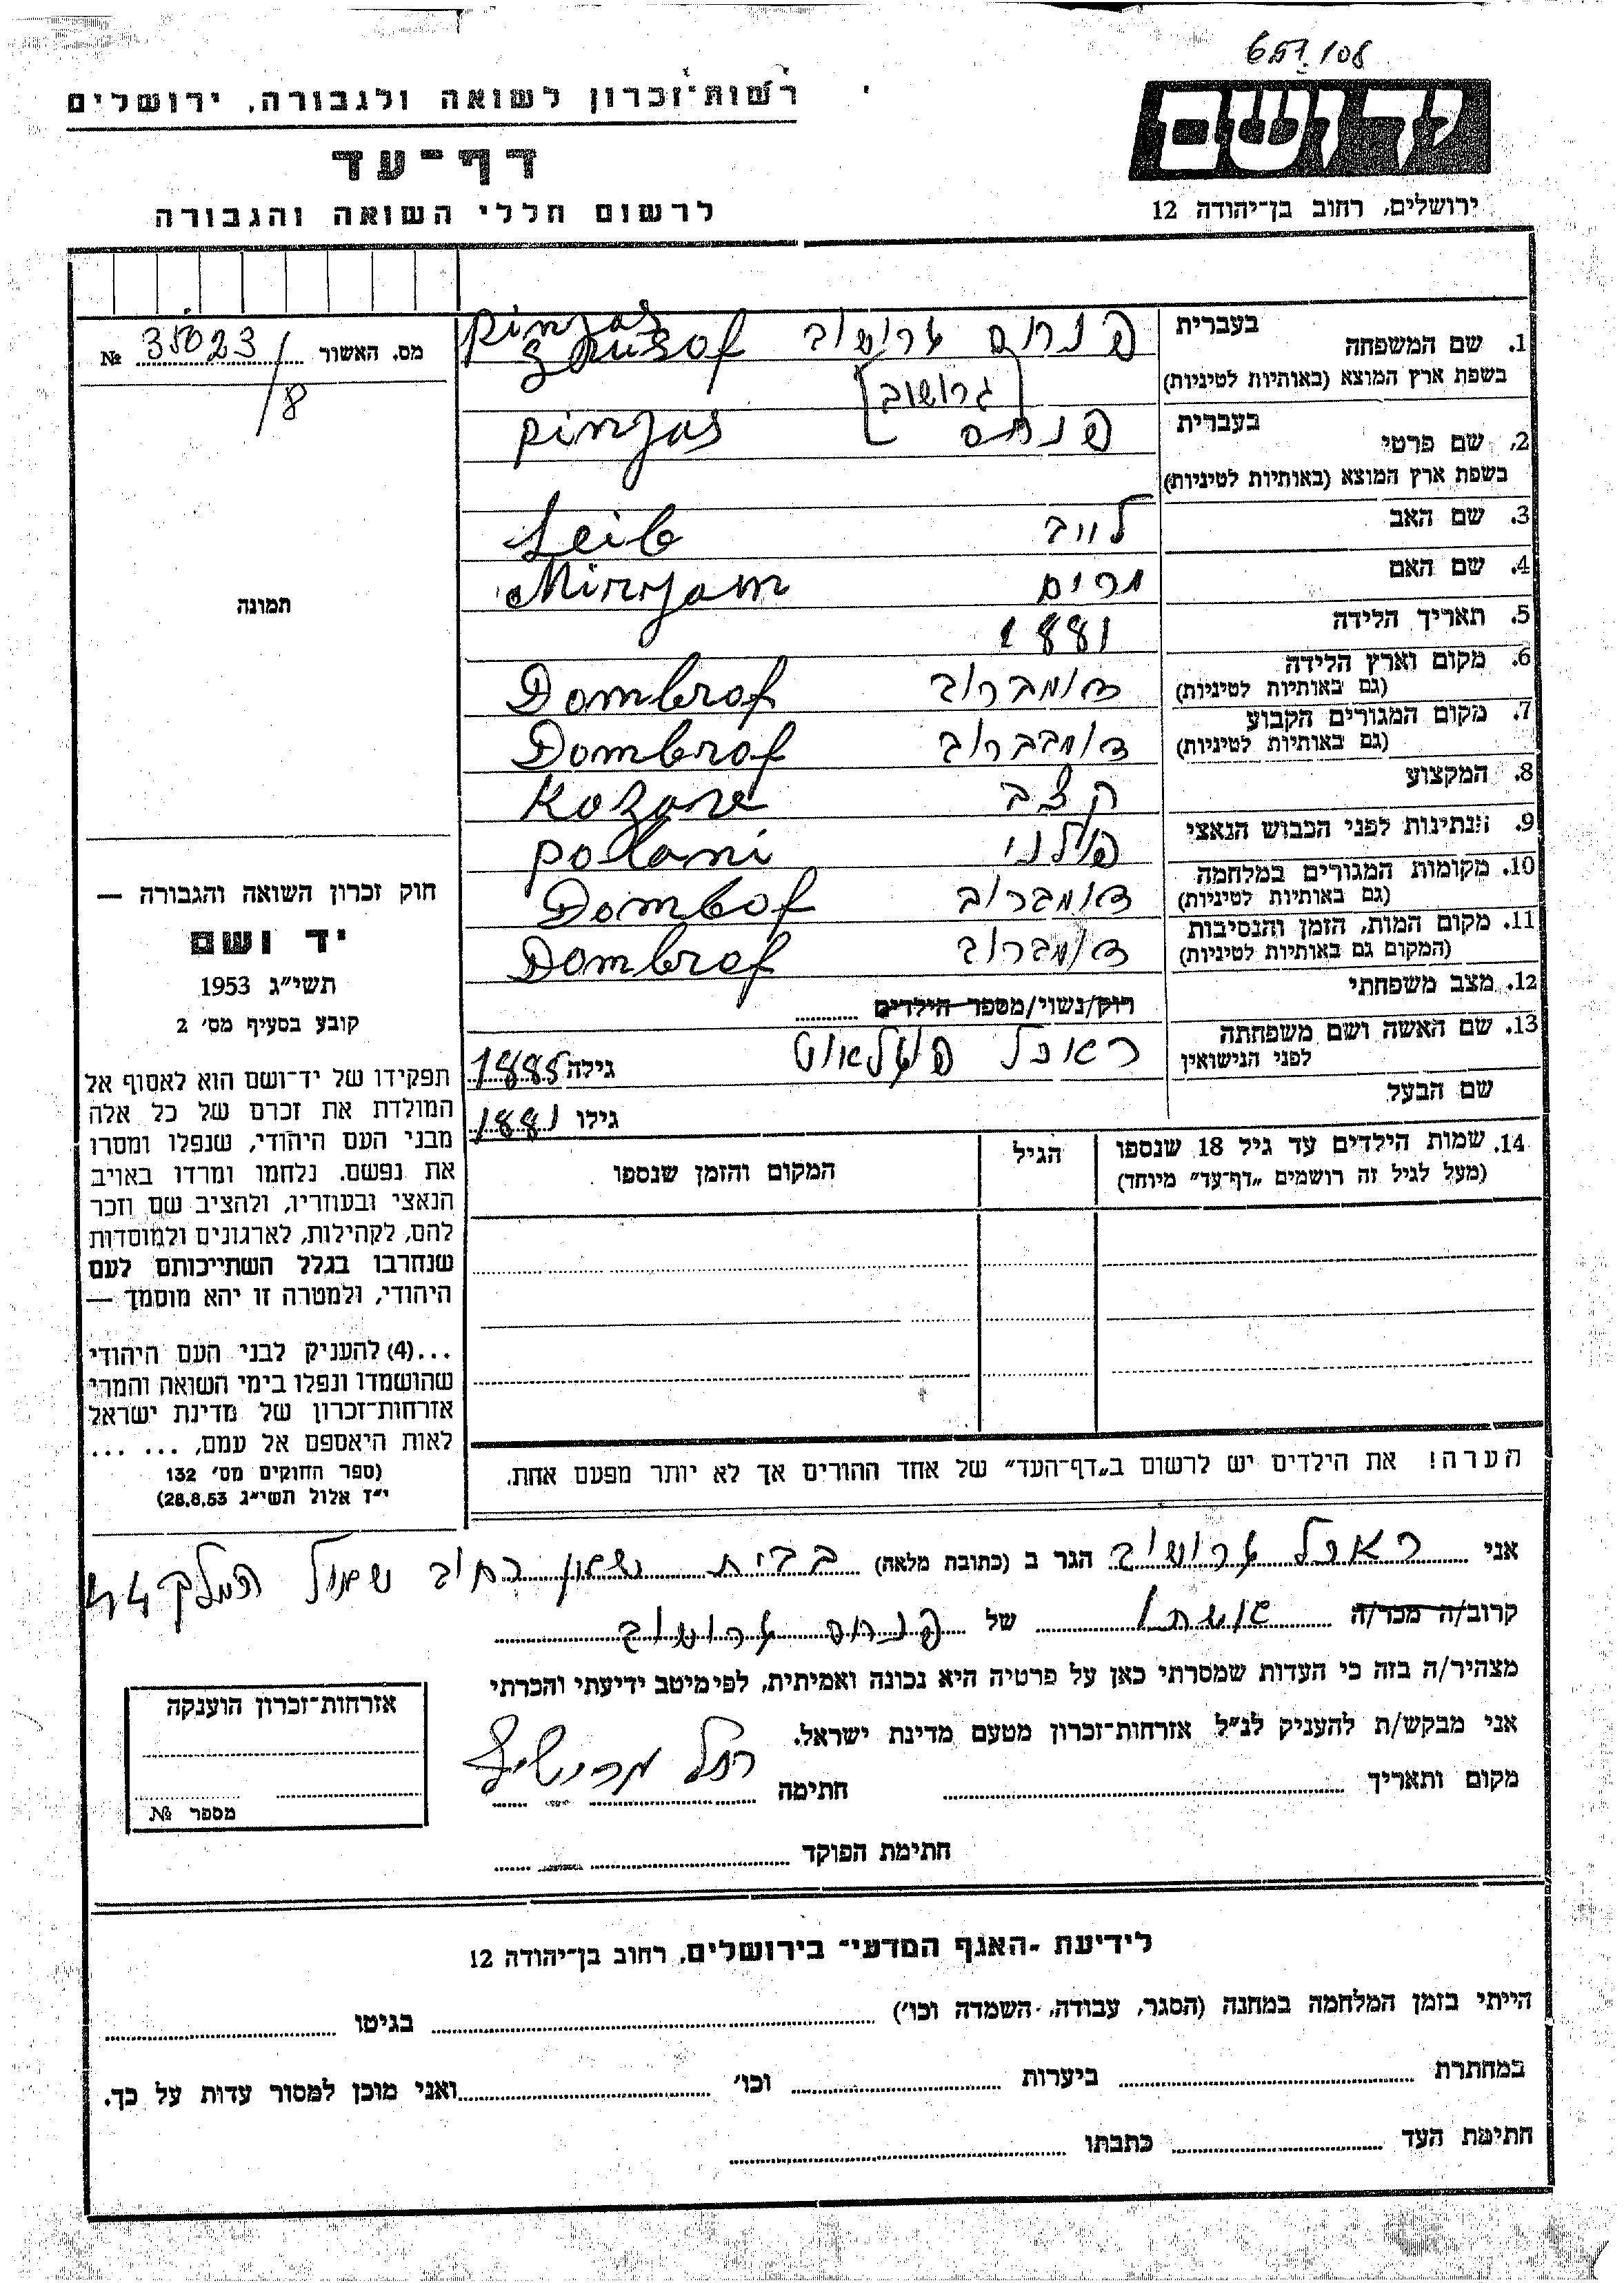 רשות־זכרון לשואה ולגבורה, ירושלים
דף־עד
לרשום חללי השואה והגבורה
יד ושם
ירושלים, רחוב בן־יהודה 12
מס. האשור 35023 №
/8
תמונה
1. שם המשפחה בעברית
פנחס גרושוב Pinzas Gruszof
בשפת ארץ המוצא (באותיות לטיניות)
[גרושוב]
2. שם פרטי בעברית
פנחס Pinzas
בשפת ארץ המוצא (באותיות לטיניות)
3. שם האב לייב Leib
4. שם האם מרים Mirryam
5. תאריך הלידה 1881
6. מקום וארץ הלידה דומברוב Dombrof
(גם באותיות לטיניות)
7. מקום המגורים הקבוע דומברוב Dombrof
(גם באותיות לטיניות)
8. המקצוע קצב
9. הנתינות לפני הכבוש הנאצי פולני Polani
10. מקומות המגורים במלחמה דומברוב Dombof
(גם באותיות לטיניות)
11. מקום המות, הזמן והנסיבות דומברוב Dombrof
(המקום גם באותיות לטיניות)
12. מצב משפחתי רווק/נשוי/מספר הילדים
13. שם האשה ושם משפחתה ראכל גילה 1885
לפני הנישואין
שם הבעל גילו 1881
14. שמות הילדים עד גיל 18 שנספו הגיל המקום והזמן שנספו
(מעל לגיל זה רושמים „דף־עד" מיוחד)
הערה! את הילדים יש לרשום ב„דף־העד" של אחד ההורים אך לא יותר מפעם אחת.
חוק זכרון השואה והגבורה —
יד ושם
תשי"ג 1953
קובע בסעיף מס' 2
תפקידו של יד־ושם הוא לאסוף אל
המולדת את זכרם של כל אלה
מבני העם היהודי, שנפלו ומסרו
את נפשם, נלחמו ומרדו באויב
הנאצי ובעוזריו, ולהציב שם וזכר
להם, לקהילות, לארגונים ולמוסדות
שנחרבו בגלל השתייכותם לעם
היהודי, ולמטרה זו יהא מוסמך —
...(4) להעניק לבני העם היהודי
שהושמדו ונפלו בימי השואה והמרי
אזרחות־זכרון של מדינת ישראל
לאות היאספם אל עמם, ... ...
(ספר החוקים מס' 132
י"ז אלול תשי"ג 28.8.53)
אני ראכל גרושוב הגר ב (כתובת מלאה) בבית רחוב שמואל המלך 44
קרוב/ה מכר/ה אשתו של פנחס גרושוב
מצהיר/ה בזה כי העדות שמסרתי כאן על פרטיה היא נכונה ואמיתית, לפי מיטב ידיעתי והכרתי
אני מבקש/ת להעניק לנ"ל אזרחות־זכרון מטעם מדינת ישראל.
מקום ותאריך חתימה רחל
חתימת הפוקד
אזרחות־זכרון הוענקה
מספר №
לידיעת „האגף המדעי" בירושלים, רחוב בן־יהודה 12
הייתי בזמן המלחמה במחנה (הסגר, עבודה, השמדה וכו') בגיטו
במחתרת ביערות וכו' ואני מוכן למסור עדות על כך.
חתימת העד כתבתו